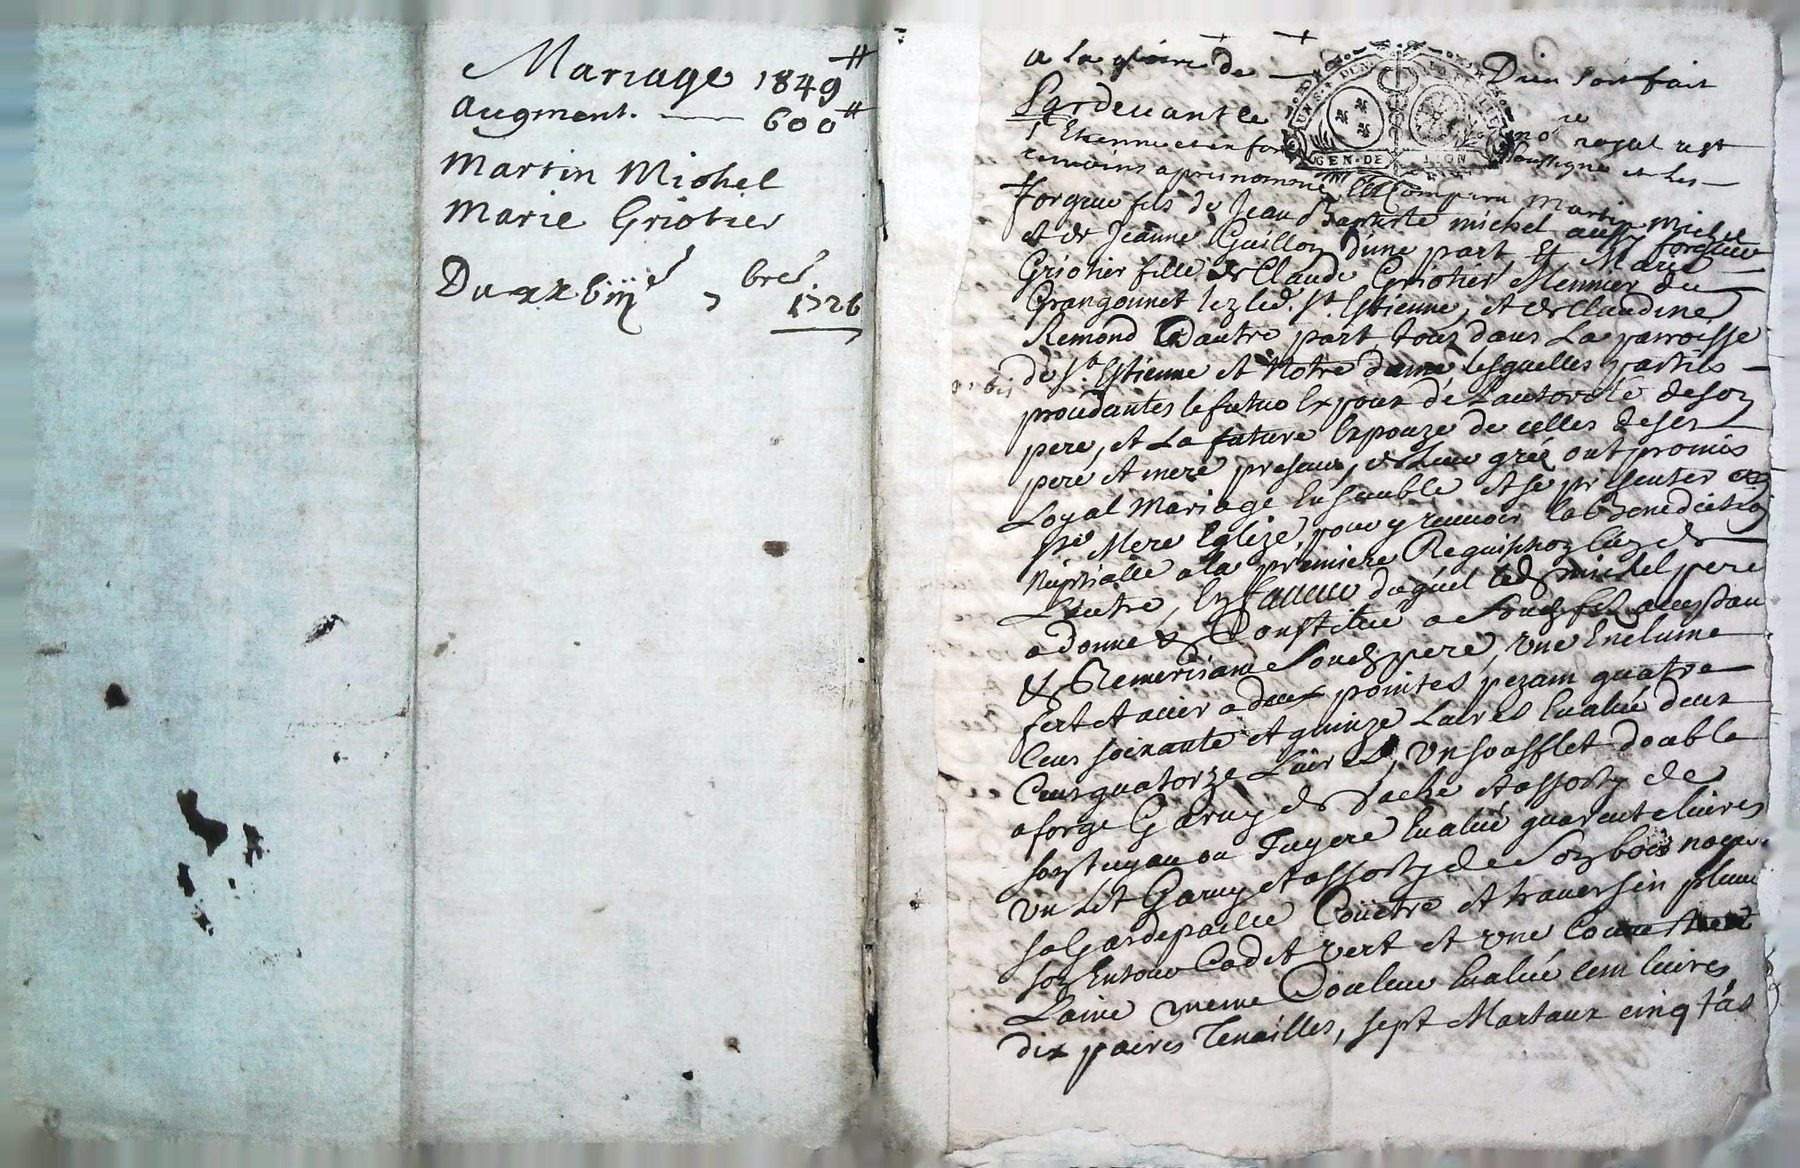 Mariage 1849#
augment. — 600#
Martin Michel
Marie Griotier
Du xxbiii^e 7 bre^s
1726
A la gloire de Dieu soit fait
Pardevant le no^re royal
S^t Etienne soussigné et les
temoins apres nommés Est Comparu Martin Michel
forgeur fils de Jean Baptiste michel aussy forgeur
et de Jeanne Guillon d'une part, Et Marie
Griotier fille de Claude Griotier Meunier du
Grangonnet lez led. S^t. Estienne, et de Claudine
Remond D'autre part, tous dans La parroisse
de S^t. Estienne et Notre dame lesquelles parties
procedantes le futur Expoux de Lautorité de son
pere, et La future Expouze de celles de ses
pere et mere presens, de Leur gréz ont promis
Loyal Mariage Ensemble et se presenter en
S^te Mere Eglize, pour y recevoir la benediction
Nuptialle a la premiere Requisition Lun de
Lautre, En faveur duquel led. michel pere
a donné & Constitué a Sond. fils acceptant
& Remerciant Sond. pere, une Enclume
fert et acier a deux pointes, pezant quatre
cens soixante et quinze Livres Evalué deux
Cens quatorze Livres, Un soufflet double
a forge Garny de Vache et assorty de
son tuyau ou Tuyere Evalué quarente livres
Un Lit Garny et assorty de Son bois noyer
sa Gardepaille Couëtre et traversin plume
son Entour Cadit vert et une Couverte
Laine meme Couleur Evalué cent livres
dix paires Tenailles, sept Martaux cinq tas
GEN. DE LION